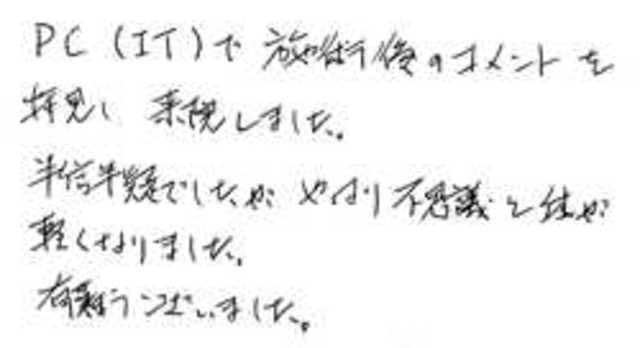 PC (IT) で 施術後のコメントを
拝見し 来院しました。
半信半疑でしたが やはり不思議と体が
軽くなりました。
有難うございました。